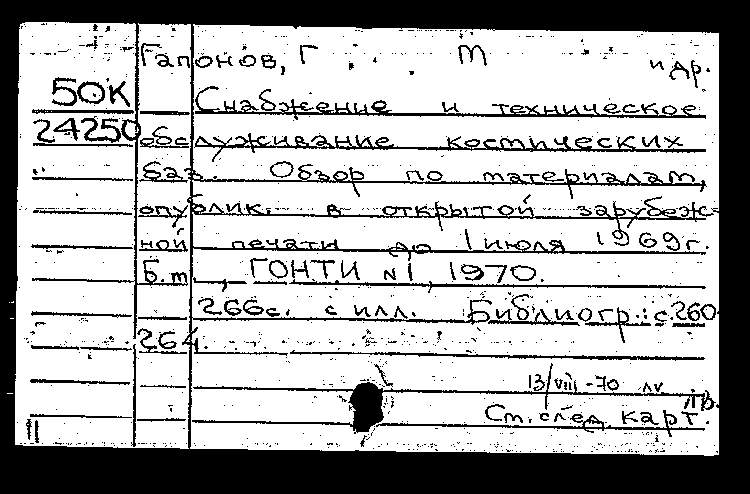 Гапонов, Г. М и др.
50К Снабжение и техническое
24250 обслуживание космических
баз. Обзор по материалам,
опублик. в открытой зарубеж-
ной печати до 1 июля 1969г.
Б.m., ГОНТИ №1, 1970.
266с. с илл. Библиогр.: с.260-
264.
13/viii -70
См. след. карт.